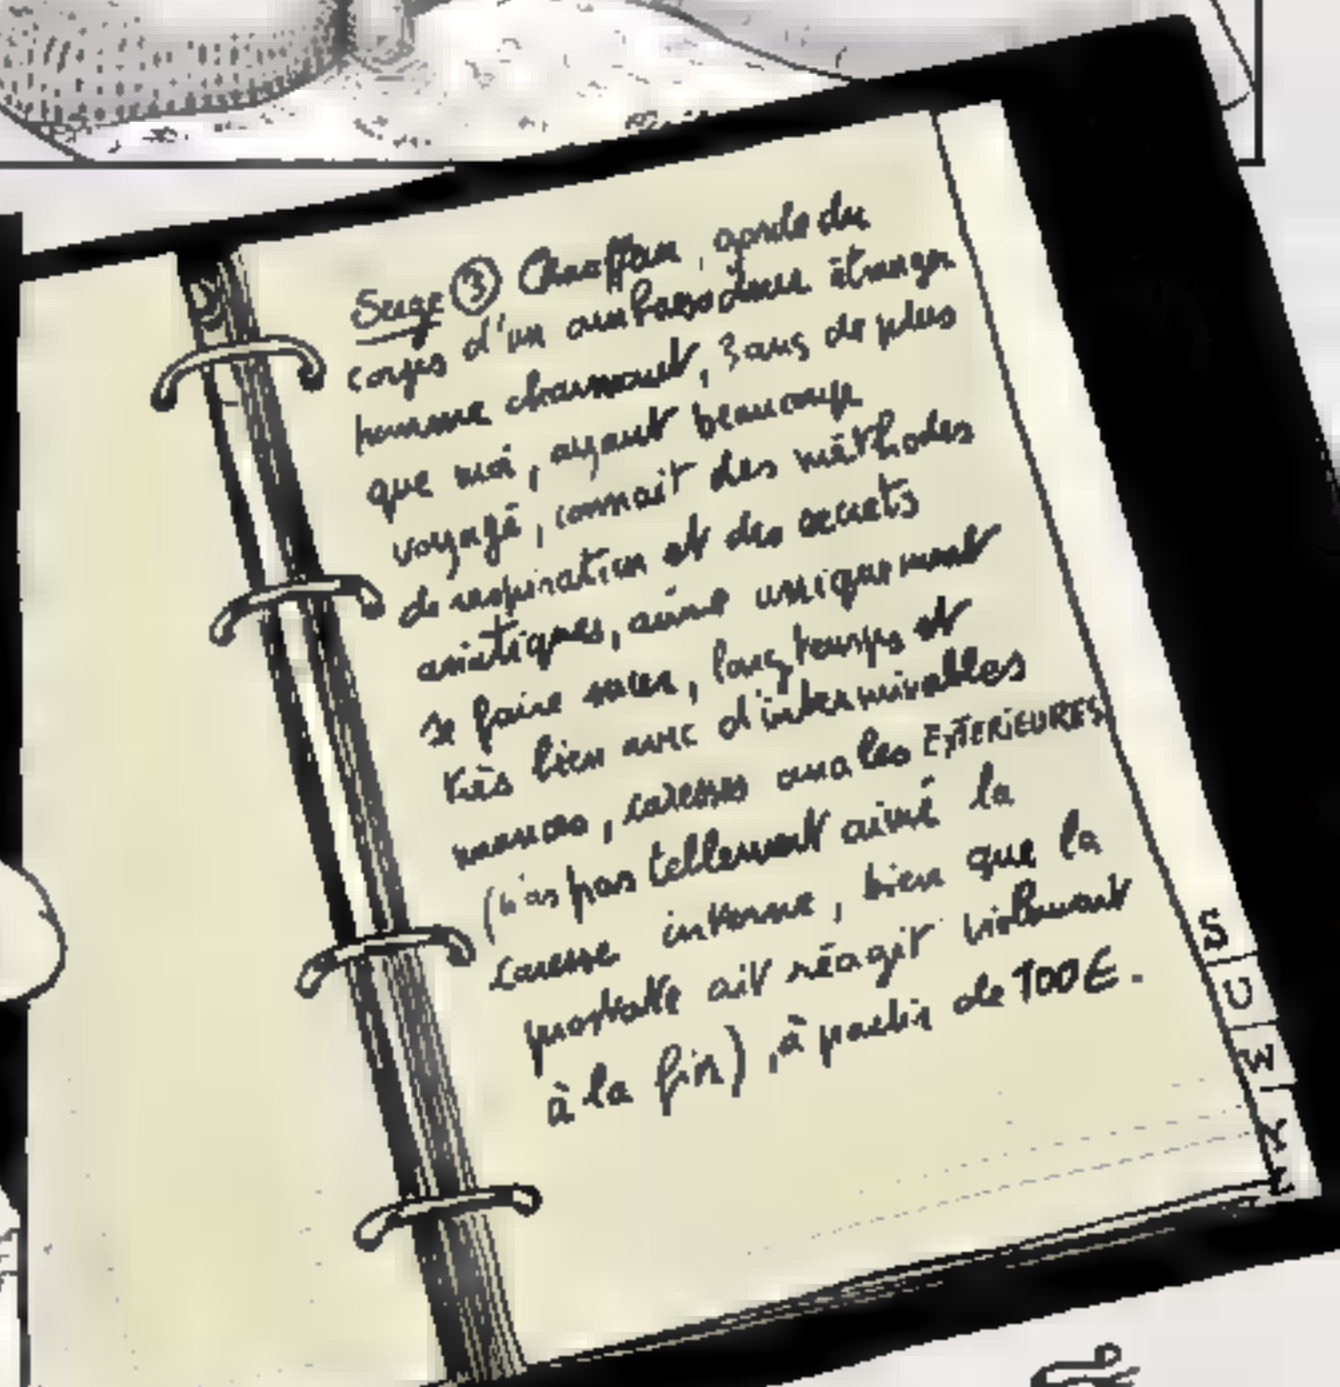 Serge ③ Chauffeur, garde du
corps d'un ambassadeur étranger
homme charmant, 3 ans de plus
que moi, ayant beaucoup
voyagé, connait des méthodes
de respiration et des secrets
asiatiques, aime uniquement
se faire sucer, longtemps et
très bien avec d'interminables
menaces, caresses anales EXTERIEURES
(n'as pas tellement aimé la
caresse interne, bien que la
prostate ait réagit violemment
à la fin), à partir de 100E.
S
U
W
X